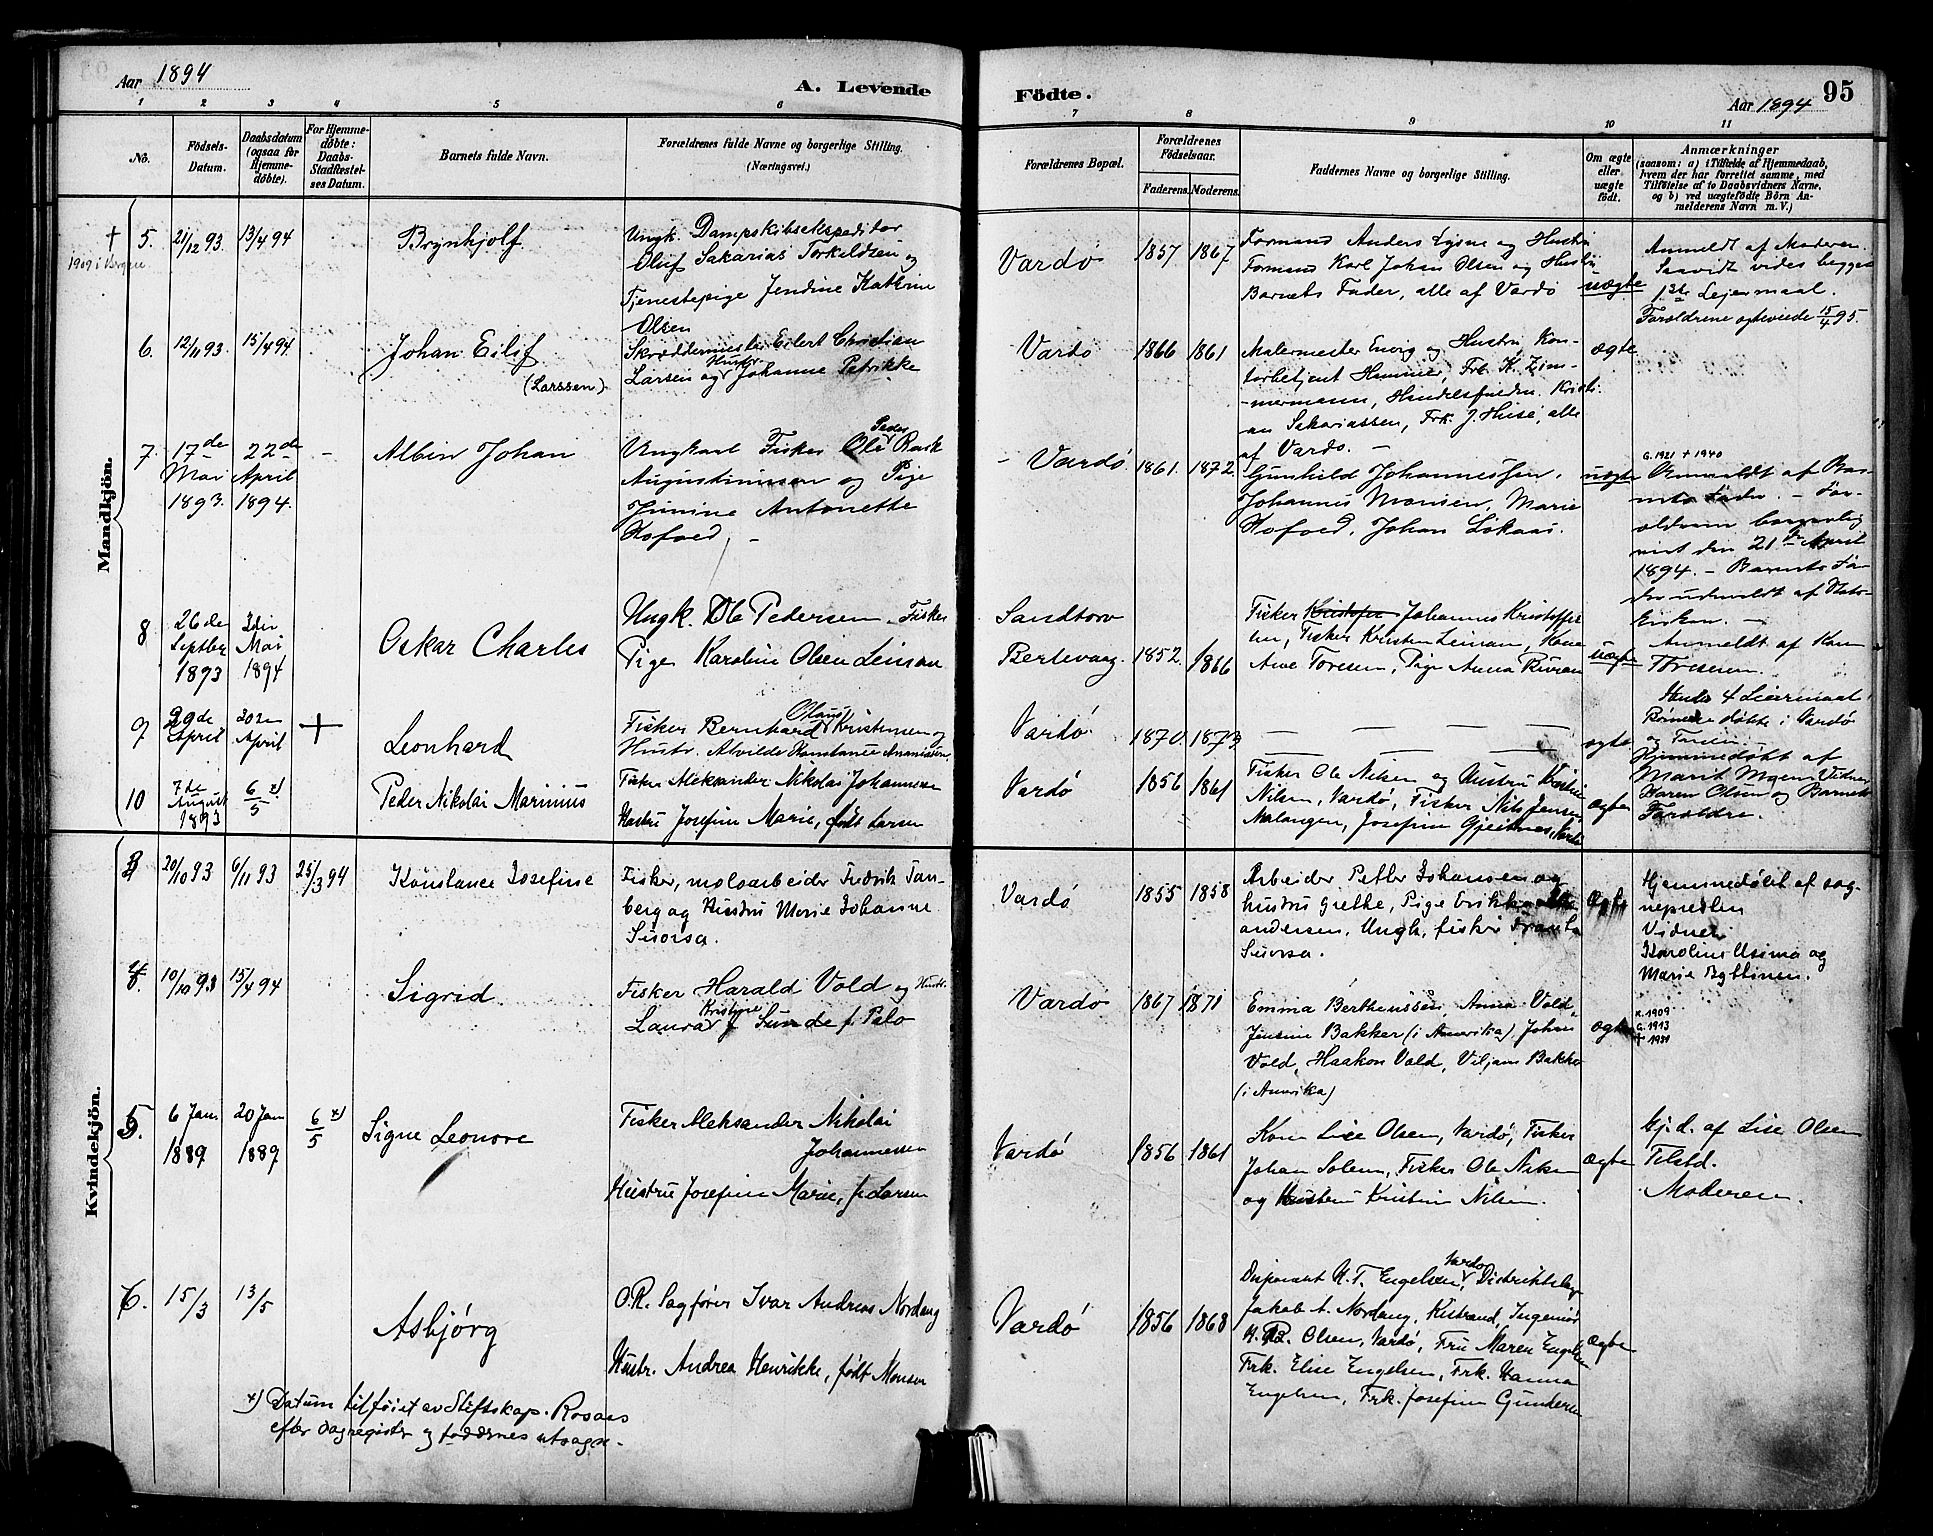 Aar 1894
A. Levende
Födte.
Aar 1894
95
1 2 3 4 5 6 7 8 9 10 11
No.
Födsels-
Datum.
Daabsdatum
(ogsaa for
Hjemme-
döbte).
For Hjemme-
döbte:
Daabs-
Stadfæstel-
ses Datum.
Barnets fulde Navn.
Forældrenes fulde Navne og borgerlige Stilling.
(Næringsvei.)
Forældrenes Bopæl.
Forældrenes
Födselsaar.
Faderens. Moderens.
Faddernes Navne og borgerlige Stilling.
Om ægte
eller
uægte
födt.
Anmærkninger
(saasom: a) i Tilfælde af Hjemmedaab,
hvem der har forrettet samme, med
Tilföielse af to Daabsvidners Navne.
og b) ved uægtefödte Börn An-
melderens Navn m. V.)
Mandkjön.
† 5. 21/12 93. 13/4 94
1909 i Bergen
Brynhjolf
Ungk. Dampskibsekspeditør
Oluf Sakarias Torkeldsen og
Tjenestepige Jendine Kathrine
Olsen
Vardø 1857 1867
Formand Anders Lysne og Hustru
Formand Karl Johan Olsen og Hustru
Barnets Fader, alle af Vardø
uægte
Anmeldt af Moderen.
Saavidt vides begges
1ste Lejermaal.
Forældrene ægteviede 15/4 95.
6. 12/11 93. 15/4 94.
Johan Eilif
(Larssen)
Skræddermester Eilert Christian
Larsen og Hustr. Johanne Petrikke
Vardø 1866 1861
Malermester Enorg og Hustru Kon-
torbetjent Hammer, Frk. K. Zim-
mermann, Handelsfuldm. Kristi-
an Sakariassen, Frk. J. Huse, alle
af Vardø. –
ægte
7. 17de Mai 1893. 22de April 1894. –
Albin Johan
Ungkarl Fisker Ole Peder Rask
Augustinussen og Pige
Jinine Antonette
Hofved. –
– Vardø 1861. 1872.
Gunhild Johannessen.
Johannes Monsen, Marie
Hofved, Johan Løkaas.
uægte
G. 1921 † 1940
Anmeldt af Bar-
nets Fader. – For-
ældrene borgerlig
viet den 21de April
1894. – Barnets Fa-
der udmeldt af Stats-
kirken. –
8 26de Septber 1893 3die Mai 1894
Oskar Charles
Ungk. Ole Pedersen, Fisker
Pige Karoline Olsen Leinan
Sandtorv
Berlevaag. 1852. 1866
Fisker Kristofer Johannes Kristoffer-
sen, Fisker Kristen Leinan, Kone
Ane Toresen, Pige Anna
uægte
Anmeldt af Kone
Thoresen.
9 29de April 30te April +
Leonhard
Fisker Bernhard Olaus Kristensen og
Hustr. Alvilde Konstance Ananiassen
Vardø 1870. 1873
– – – –
ægte
Hjemmedøbt af
Marit Moen Vidner
Karen Olsen og Barnets
Forældre.
10 7de August 1893 6/5 x)
Peder Nikolai Marinius
Fisker Aleksander Nikolai Johannessen
Hustru Josefine Marie, født Larsen
Vardø 1856 1861
Fisker Ole Nilsen og Hustru Kristine
Nilsen, Vardø, Fisker Nils Jensen
Malangen, Josefine Gjeitnes, Vardø
Ægte
Kvindekjön.
3 20/10 93 6/11 93 25/3 94
Konstance Josefine
Fisker, moloarbeider Fredrik Tan-
berg og Hustru Marie Johanne
Suorsa.
Vardø 1855 1858
Arbeider Petter Johansen og
hustru Grethe, Pige Erikka
andersen, Ungk. fisker Frants
Suorsa.
Ægte
Hjemmedøbt af sog-
nepresten
Vidner
Karoline Usima og
Marie Bytlinen.
4. 10/10 93 15/4 94
Sigrid
Fisker Harald Vold og Hustr.
Laura Kristine J Sunde f. Palo
Vardø 1867 1871
Emma Berthenssen, Anna Vold,
Jensine Bakker (i Amerika), Johan
Vold, Haakon Vold, Viljam Bakker
(i Amerika)
ægte
K. 1909
G. 1913
† 1951
5. 6 Jan. 1889 20 Jan 1889 6/5 x)
Signe Leonore
Fisker Aleksander Nikolai
Johannessen
Hustru Josefine Marie, f. Larsen
Vardø 1856 1861
Kone Lise Olsen, Vardø, Fisker
Johan Solem, Fisker Ole Nilsen
og Hustru Kristine Nilsen.
Ægte
Hj. d. af Lise Olsen
Tilstd.
Moderen.
6. 15/3 13/5
Asbjørg
O.R. Sagfører Ivar Andreas Nordang
Hustr. Andrea Henrikke, født Monsen
Vardø 1856 1868
Disponent H. T. Engelsen, Vardø, Distriktslæge
Jakob A. Nordang, Kistrand, Ingeniør
H. B. Olsen, Vardø, Fru Maren Engelsen
Frk. Elise Engelsen, Frk. Hanna
Engelsen, Frk. Josefine Gundersen
Ægte
x) Datum tilføiet av Stiftskap. Rosaas
efter dagregister og faddernes utsagn.